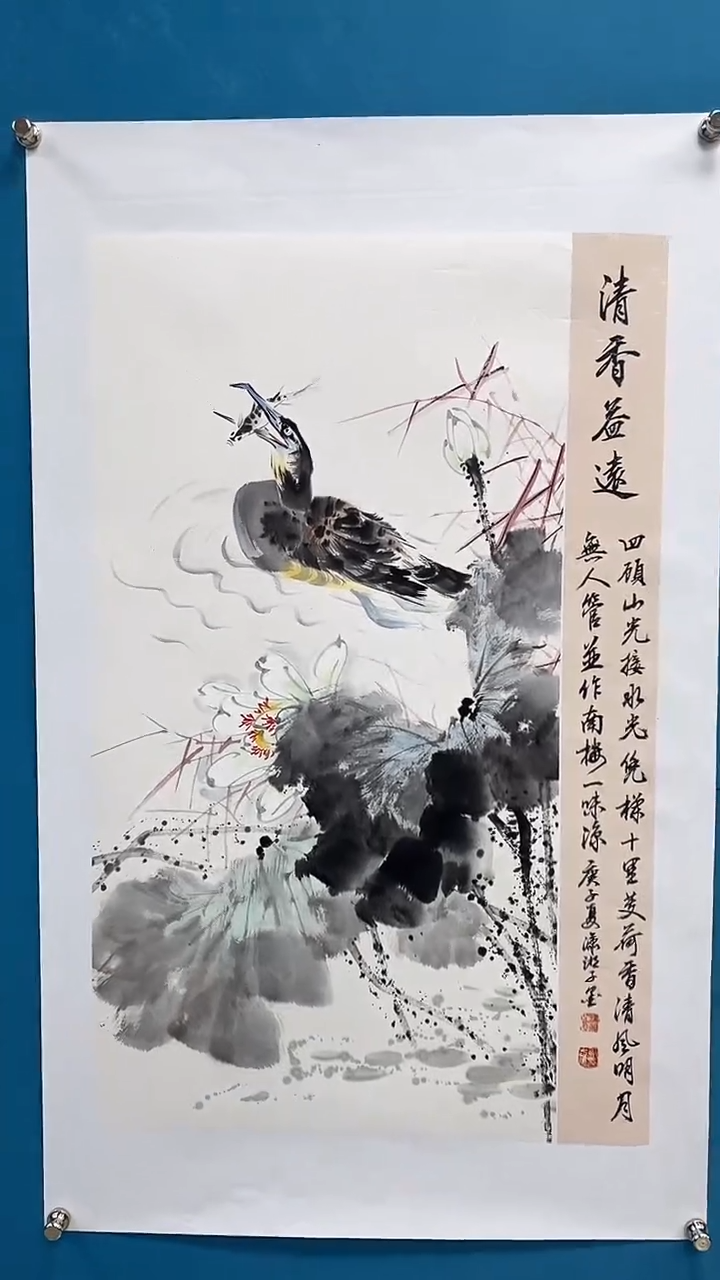 清香益遠
四顧山光接水光凭栏十里芰荷香清風明月
無人管並作南楼一味凉庚子夏